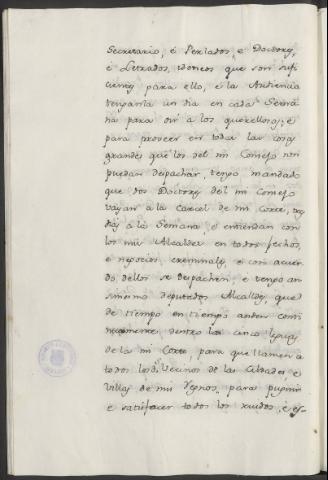 Secretario, é Perlados, e Doctores,
é Letrados, idoneos que son sufi-
cientes para ello, e la Audiencia
tengan la un dia en cada Sema-
na para oir a los querellosos; e
para proveer en todas las cosas
grandes que los del mi Consejo non
puedan despachar, tengo mandado
que dos Doctores del mi Consejo
vayan a la carcel de mi Corte, dos
dias a la Semana, é entiendan con
los mis Alcaldes en todos fechos,
e negocios criminales, é con acuer-
do dellos se despachen, é tengo an-
simesmo deputados Alcaldes, que
de tiempo en tiempo anden conti-
nuamente, dentro las cinco leguas
de la mi Corte, para que llamen a
todos los Vecinos de las Cibdades, e
Villas de mis Regnos para pugnir
e satisfacer todos los ruidos, é es-